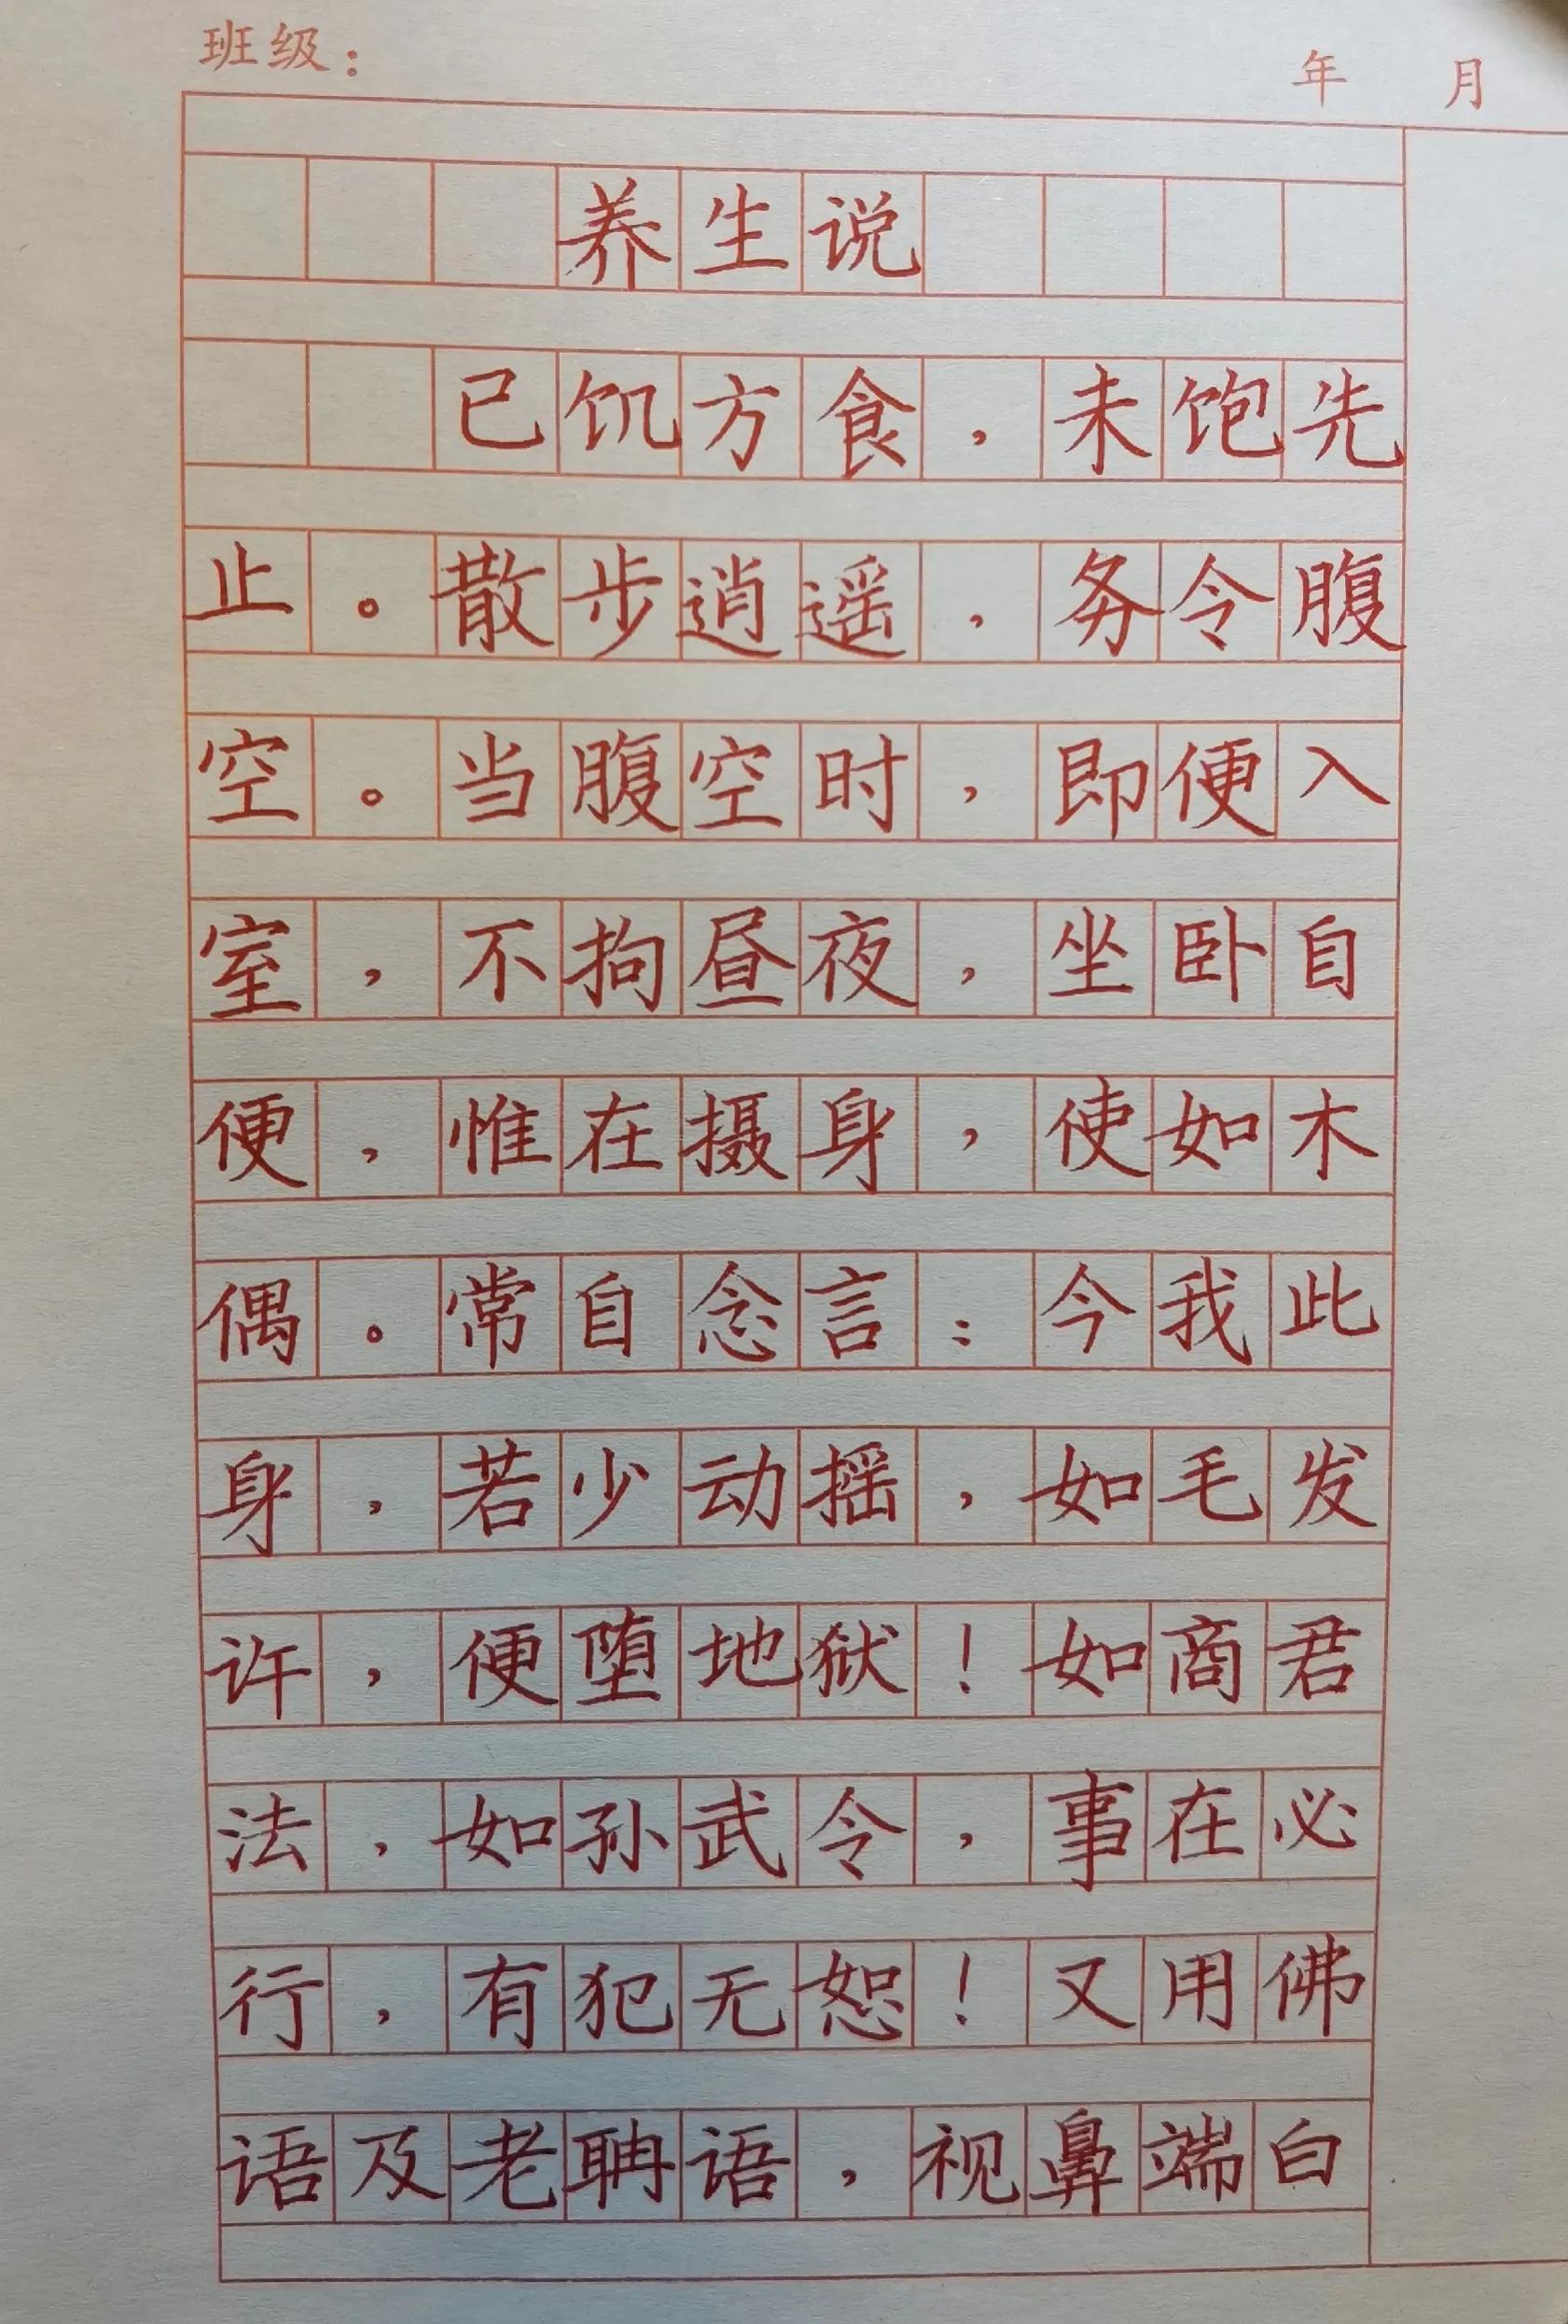 班级：
年 月
养生说
已饥方食，未饱先
止。散步逍遥，务令腹
空。当腹空时，即便入
室，不拘昼夜，坐卧自
便，惟在摄身，使如木
偶。常自念言：今我此
身，若少动摇，如毛发
许，便堕地狱！如商君
法，如孙武令，事在必
行，有犯无恕！又用佛
语及老聃语，视鼻端白